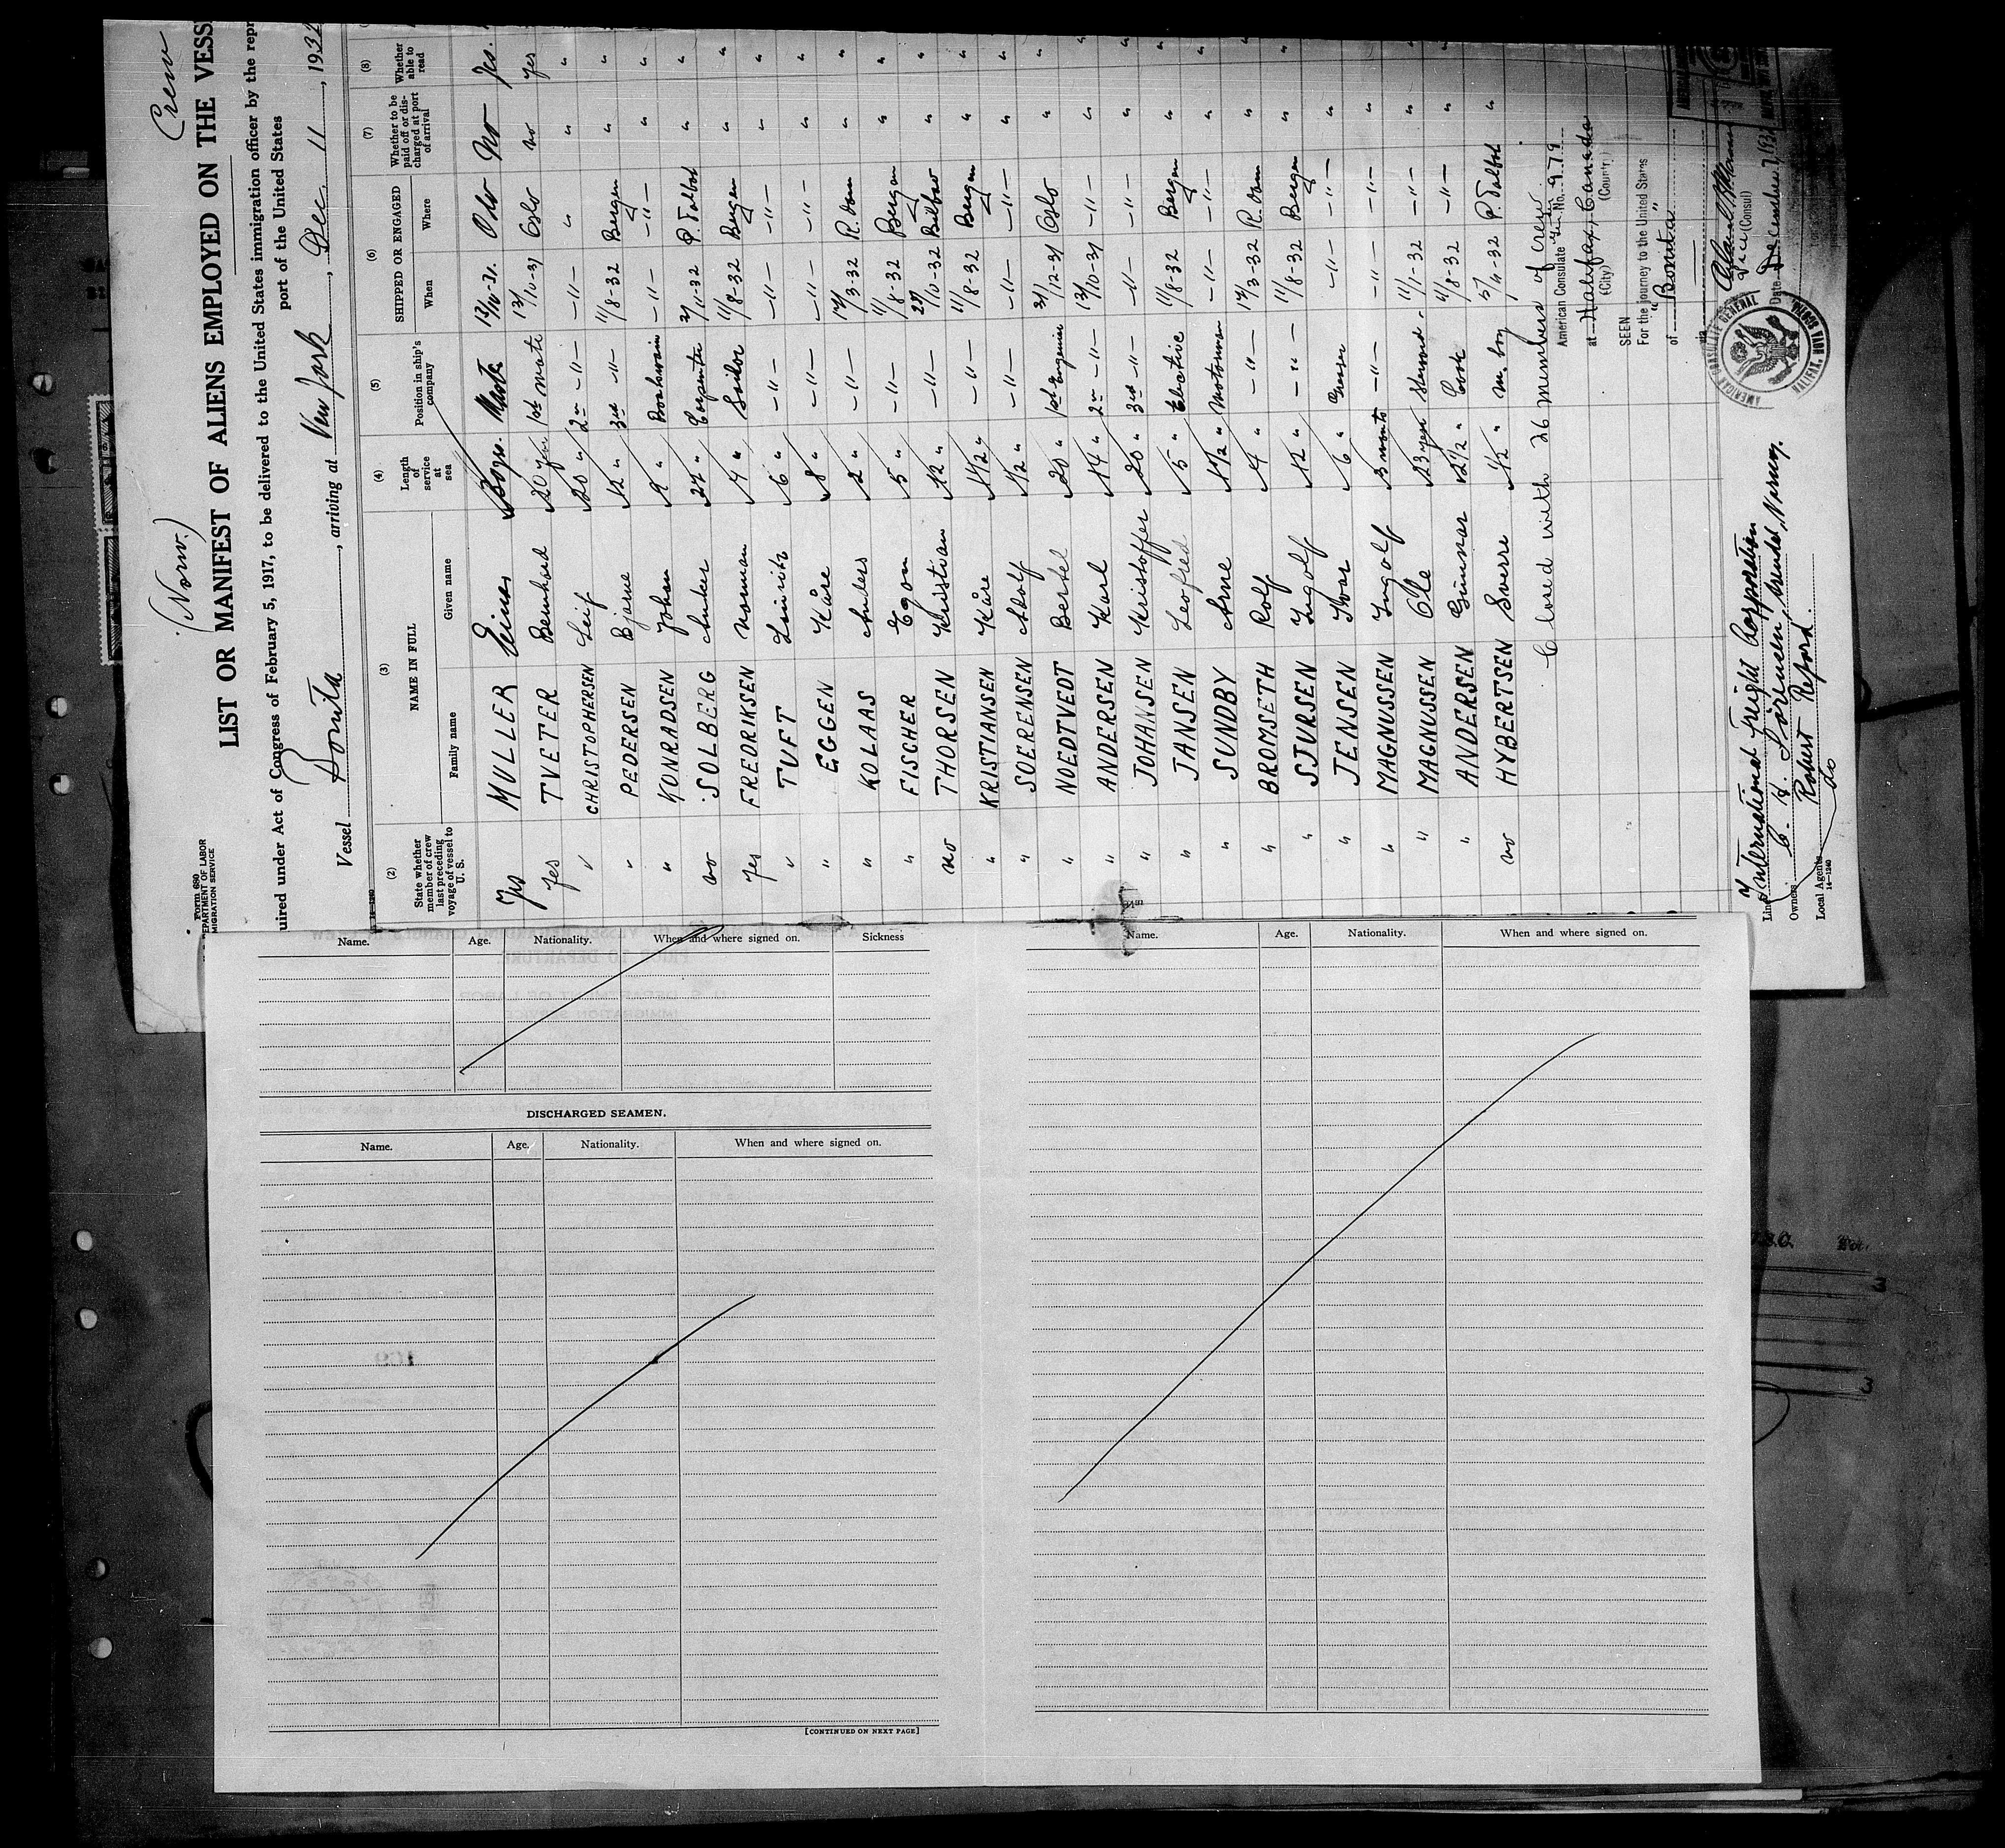 Crew
(Norw.)
Form 680
DEPARTMENT OF LABOR
IMMIGRATION SERVICE
LIST OR MANIFEST OF ALIENS EMPLOYED ON THE VESS
uired under Act of Congress of February 5, 1917, to be delivered to the United States immigration officer by the repr
port of the United States
Vessel Bonita, arriving at New York, Dec. 11, 1932
14-1240
(2) (3) (4) (5) (6) (7) (8)
State whether member of crew last preceding voyage of vessel to U. S. NAME IN FULL Length of service at sea Position in ship's company SHIPPED OR ENGAGED Whether to be paid off or discharged at port of arrival Whether able to read
Family name Given name When Where
Yes MULLER Einar 30 yrs. Mast. 13/10-31. Oslo No Yes.
Yes TVETER Bernhard 20 yrs 1st mate 13/10-31 Oslo no yes
" CHRISTOPHERSEN Leif 20 " 2n -"- -"- " " "
" PEDERSEN Bjarne 12 " 3rd -"- 11/8-32 Bergen " "
" KONRADSEN Johan 9 " Boatswain -"- -"- " "
no SOLBERG Anker 27 " Carpenter 2/11-32 P. Talbot " "
yes FREDRIKSEN Norman 7 " Sailor 11/8-32 Bergen " "
" TUFT 6 " -"- -"- -"- " "
" EGGEN Kåre 8 " -"- -"- -"- " "
" KOLAAS Anders 2 " -"- 17/3-32 R.dam " "
" FISCHER Egon 5 " -"- 11/8-32 Bergen " "
no THORSEN Kristian 12 " -"- 27/10-32 Bilbao " "
" KRISTIANSEN Kåre 1 1/2 " -"- 11/8-32 Bergen " "
" SOERENSEN Adolf 1/2 " -"- -"- -"- " "
" NOEDTVEDT Bertel 20 " 1st Engenier 31/12-31 Oslo " "
" ANDERSEN Karl 14 " 2n -"- 13/10-31 -"- " "
" JOHANSEN Kristoffer 20 " 3rd -"- -"- -"- " "
" JANSEN Leofred 5 " Electrive 11/8-32 Bergen " "
" SUNDBY Arne 1 1/2 " Motorman -"- -"- " "
" BROMSETH Rolf 4 " -"- 17/3-32 R.dam " "
" SJURSEN Ingolf 12 " -"- 11/8-32 Bergen " "
" JENSEN Ivar 6 " Greaser -"- -"- " "
" MAGNUSSEN Ingolf 3 months -"- -"- -"- " "
" MAGNUSSEN Ole 23 years Steward 11/1-32 -"- " "
" ANDERSEN Gunnar 2 1/2 " Cook 11/8-32 -"- " "
no HYBERTSEN Sverre 1/2 " M. boy 5/11-32 P. Talbot "
Closed with 26 members of crew
American Consulate General No. 979
at Halifax, Canada
(City) (Country)
SEEN
For the journey to the United States
of "Bonita"
via
Vice (Consul)
Date December 7, 193
AMERICAN CONSULATE GENERAL
HALIFAX, NOVA SCOTIA
Line International Freight Corporation
Owners C. H. Sörensen, Arendal, Norway.
Robert Reford.
Local Agents do
14-1240
Name. Age. Nationality. When and where signed on. Sickness
DISCHARGED SEAMEN.
Name. Age. Nationality. When and where signed on.
[CONTINUED ON NEXT PAGE]
Name. Age. Nationality. When and where signed on.